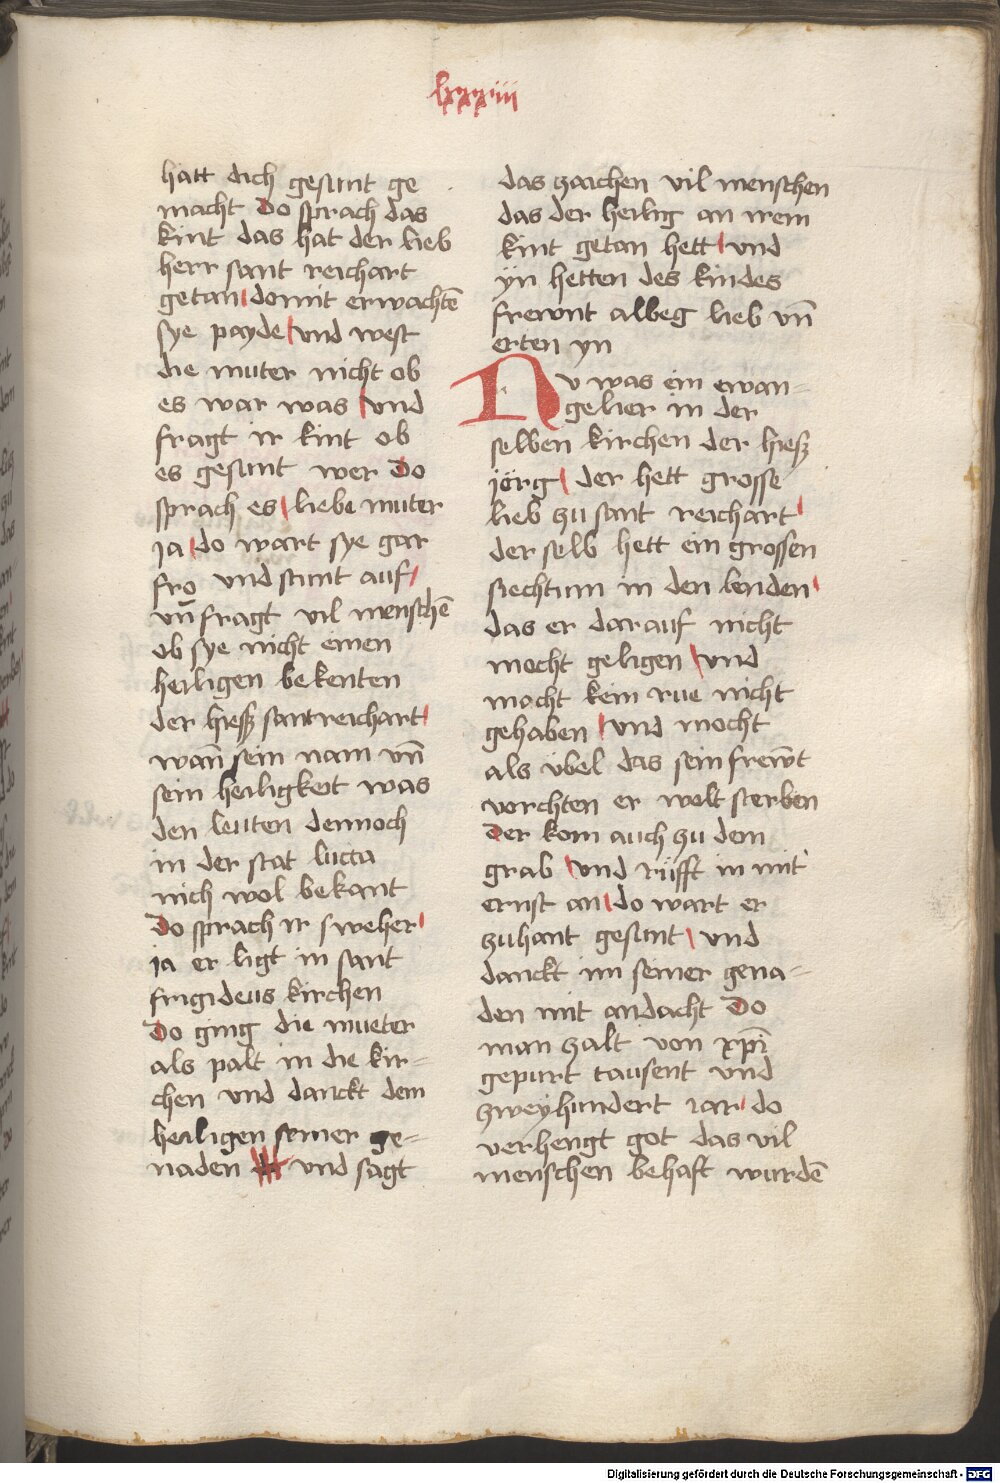 lxxxiiii
hatt dich gesunt ge
macht Do sprach das
kint das hat der lieb
herr sant reichart
getan domit erwachtē
sye payde vnd west
die muter nicht ob
es war was vnd
fragt ir kint ob
es gesunt wer Do
sprach es liebe muter
ja do wart sye gar
fro vnd stunt auf
vn̄ fragt vil menschē
ob sye nicht einen
heiligen bekenten
der hiesz sant reichart
wan̄ sein nam vn̄
sein heiligkeit was
den leuten dennoch
in der stat lucca
nich wol bekant
Do sprach ir sweher
ja er ligt in sant
frigideus kirchen
Do ging die mueter
als palt in die kir=
chen vnd danckt dem
heiligen seiner ge=
naden vnd sagt
das zaichen vil menschen
das der heilig an irem
kint getan hett vnd
yn hetten des kindes
frewnt albeg lieb vn̄
erten yn
Nv was ein ewan=
gelier in der
selben kirchen der hiesz
jörg der hett grosse
lieb zu sant reichart
der selb hett ein grossen
siechtum in den lenden
das er darauf nicht
mocht geligen vnd
mocht kein rue nicht
gehaben vnd mocht
als vbel das sein frewt
vorchten er wolt sterben
Der kom auch zu dem
grab vnd rüfft in mit
ernst an do wart er
zuhant gesunt vnd
danckt im seiner gena=
den mit andacht Do
man zalt von xpi
gepurt tausent vnd
zweyhundert iar do
verhengt got das vil
menschen behaft wurdē
Digitalisierung gefördert durch die Deutsche Forschungsgemeinschaft - DFG